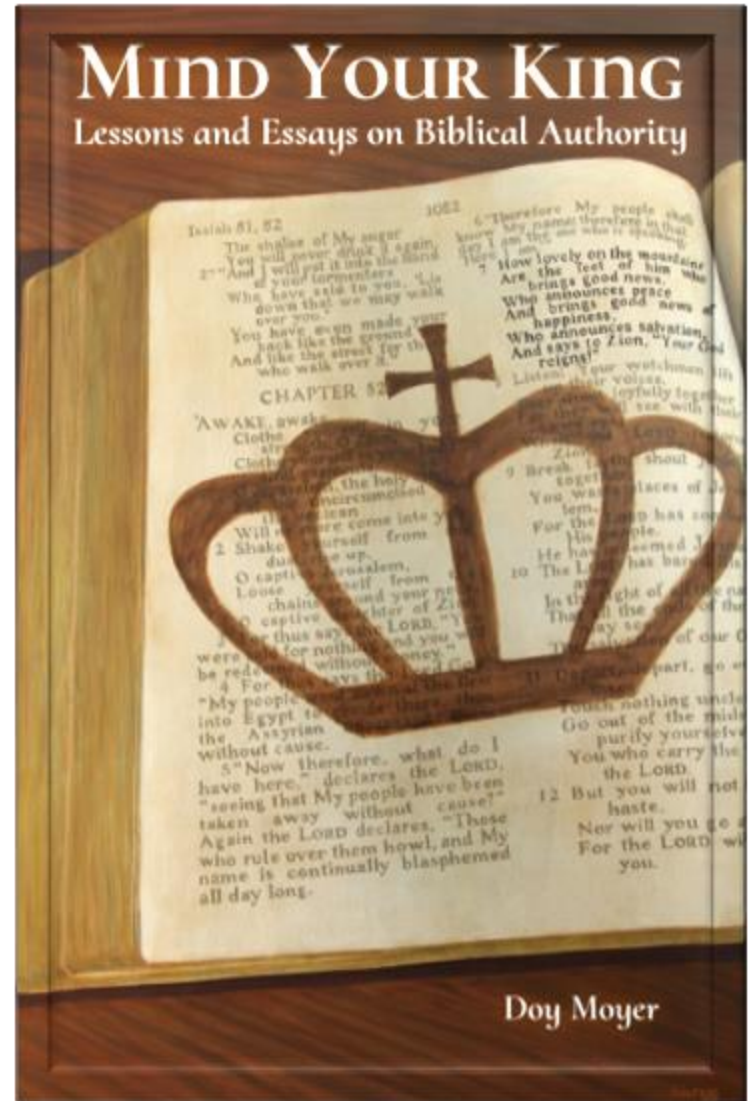 MIND YOUR KING
Lessons and Essays on Biblical Authority
Isaiah 51, 52
1052
The chalice of My anger
You will never drink it again,
2 "And I will put it into the hand
of your tormentors
Who have said to you, 'Lie
down that we may walk
over you.'
You have even made your
back like the ground
And like the street for th
who walk over it."
CHAPTER 52
"AWAKE, awake
Clothe in yo
Cloth
the holy
uncircumcised
Will more come into y
2 Shake urself from
du e up,
O capti erusalem,
Loose self from
chain ound your ne
O captive ghter of Zi
r thus say the LORD, "Y
were for nothin and you w
be rede without money."
4 For ays the
"My people
into Egypt to
the Assyrian
without cause.
5 "Now therefore, what do I
have here," declares the LORD,
"seeing that My people have been
taken away without cause?"
Again the LORD declares, "Those
who rule over them howl, and My
name is continually blasphemed
all day long.
6 "Therefore My people shall
know My name; therefore in that
day I am the one who is speaking,
'Here I am.'
7 How lovely on the mountains
Are the feet of him who
brings good news,
Who announces peace
And brings good news of
happiness,
Who announces salvation,
And says to Zion, "Your God
reigns!"
Listen, Your watchmen lift
their voices,
joyfully together
see with their
Zion
9 Break shout
toget
You was laces of J
lem,
For the LORD has com
His ple,
He ha eemed J
10 The L has bare his
In th ght of all the na
Tha ll the ends of the
ay see
of our G
11 Depart, part, go o
Touch nothing uncle
Go out of the mids
purify yourselve
You who carry the
the LORD.
12 But you will not
haste,
Nor will you go a
For the LORD wil
you,
Doy Moyer